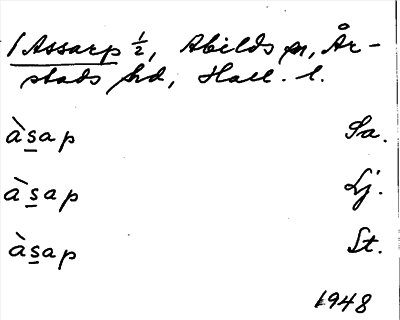 /Assarp ½, Abilds sn, År-
stads hd, Hall. l.
àsap Sa.
àsap Lj.
àsap St.
1948